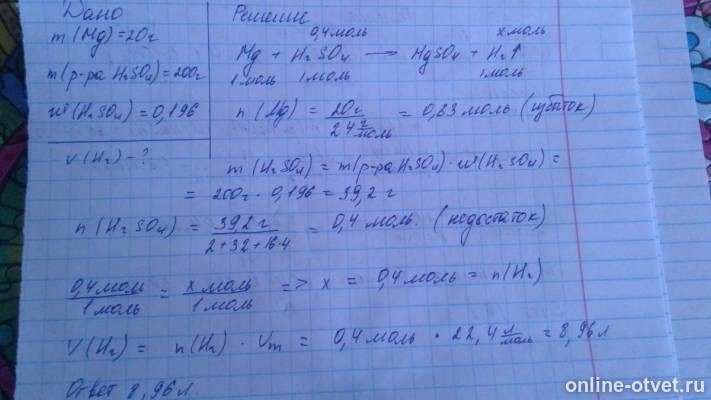 Дано
m(Mg)=20г
m(р-ра H₂SO₄)=200г
w(H₂SO₄)=0,196
V(H₂)-?
Решение
0,4 моль х моль
Mg + H₂SO₄ → MgSO₄ + H₂↑
1 моль 1 моль 1 моль
n(Mg) = 20г / 24 г/моль = 0,83 моль (избыток)
m(H₂SO₄) = m(р-ра H₂SO₄)·w(H₂SO₄) =
= 200г · 0,196 = 39,2 г
n(H₂SO₄) = 39,2 г / 2+32+16·4 = 0,4 моль. (недостаток)
0,4 моль / 1 моль = х моль / 1 моль => х = 0,4 моль = n(H₂)
V(H₂) = n(H₂) · Vm = 0,4 моль · 22,4 л/моль = 8,96 л
Ответ 8,96 л.
online-otvet.ru